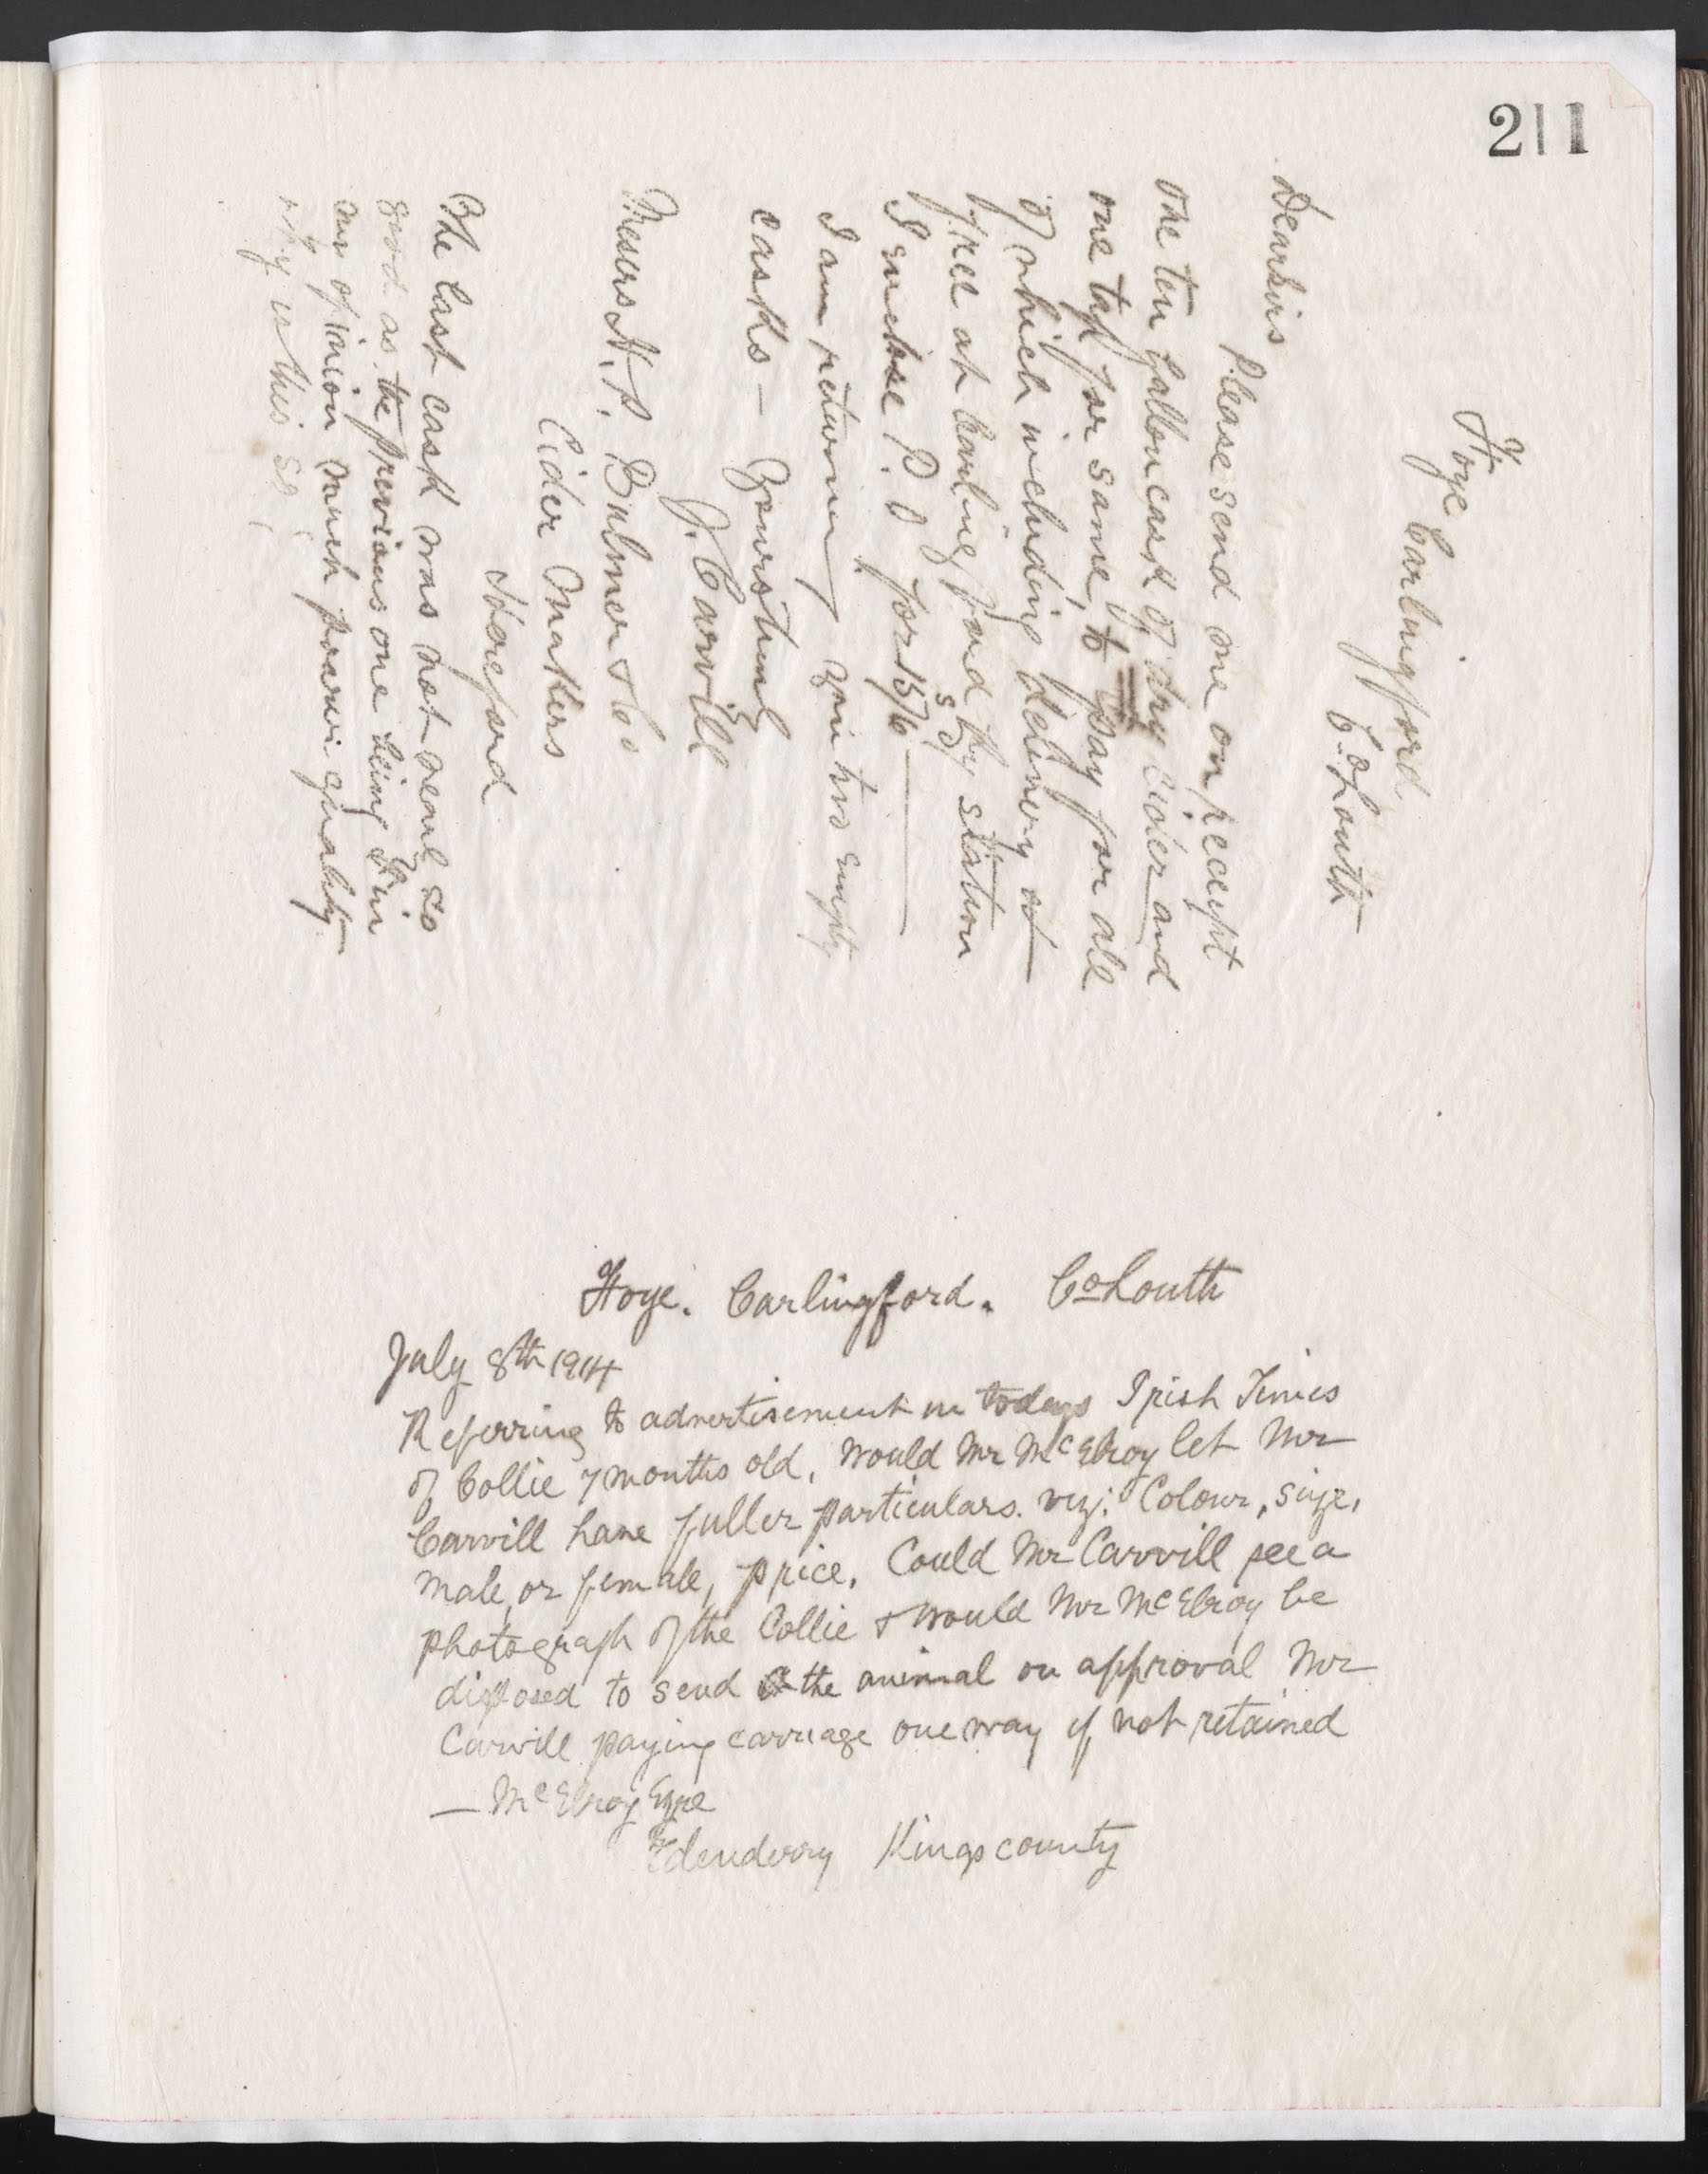 211
Foye Carlingford
Co Louth
Dear Sirs
Please send me on receipt
one ten gallon cask of dry cider and
one tap for same, to pay for all
of which including delivery at
free at Carlingford Rly station
I enclose P. O for 15/6
I am returning you two empty
casks — Yours truly
J. Carvill
Messrs H. P. Bulmer & Co
Cider Makers
Hereford
The last cask was not near so
good as the previous one being in
my opinion much poorer quality.
why is this so.
Foye. Carlingford. Co Louth
July 8th 1914
Referring to advertisement in todays Irish Times
of Collie 7 months old, would Mr McElroy let Mr
Carvill have fuller particulars. viz: Colour, size,
male, or female, price. Could Mr Carvill see a
photograph of the Collie & would Mr McElroy be
disposed to send the animal on approval Mr
Carvill paying carriage one way if not retained
— McElroy Esqre
Edenderry Kings county